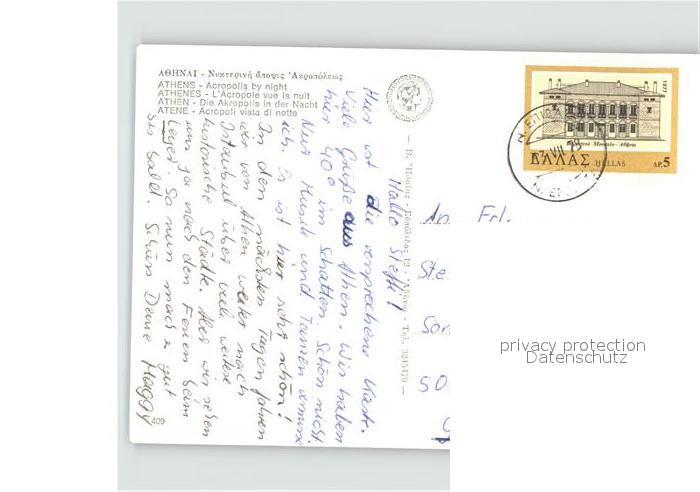 ΑΘΗΝΑΙ - Νυκτερινή ἄποψις Ἀκροπόλεως
ATHENS - Acropolis by night
ATHENES - L'Acropole vue la nuit
ATHEN - Die Akropolis in der Nacht
ATENE - Acropoli vista di notte
Hallo Steffi!
Hier ist die versprochene Karte.
Viele Grüße aus Athen. Wir haben
hier 40° im Schatten. Schön nicht.
Nur Musik und Tanzen
ich. Es ist hier sehr schön!
In den nächsten Tagen fahren
wir von Athen weiter nach
Istanbul über viele weitere
historische Städte. Aber wir sehen
uns ja nach den Ferien beim
So nun mach's gut
bis bald. Tschüss Deine Maggy
409
Ἀθῆναι - Τηλ.
An Frl.
Ste
Son
50
1977
Μουσεῖο - Ἀθήνα
ΕΛΛΑΣ HELLAS ΔΡ. 5
VII 79
privacy protection
Datenschutz